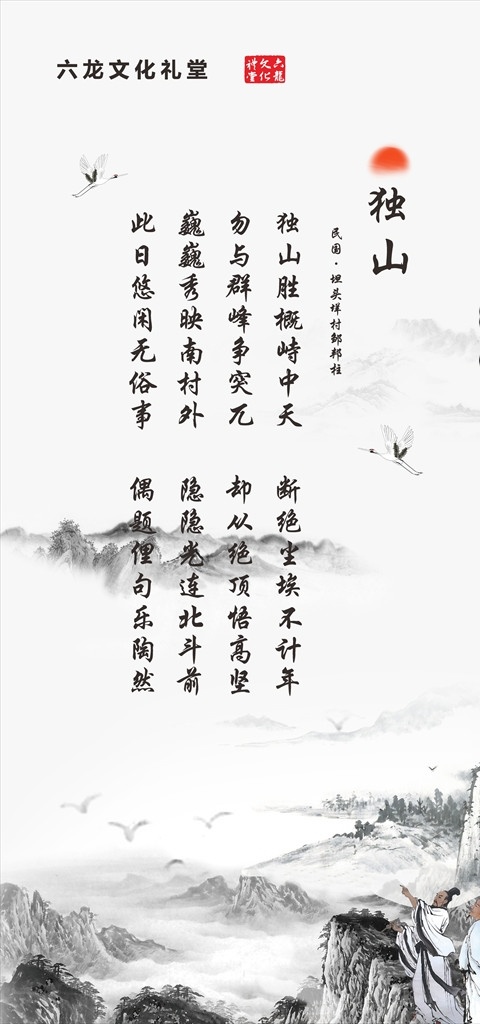 六龙文化礼堂
六龍文化礼堂
独山
民国·坦头垟村邹邦柱
独山胜概峙中天 断绝尘埃不计年
勿与群峰争突兀 却从绝顶悟高坚
巍巍秀映南村外 隐隐光连北斗前
此日悠闲无俗事 偶题俚句乐陶然